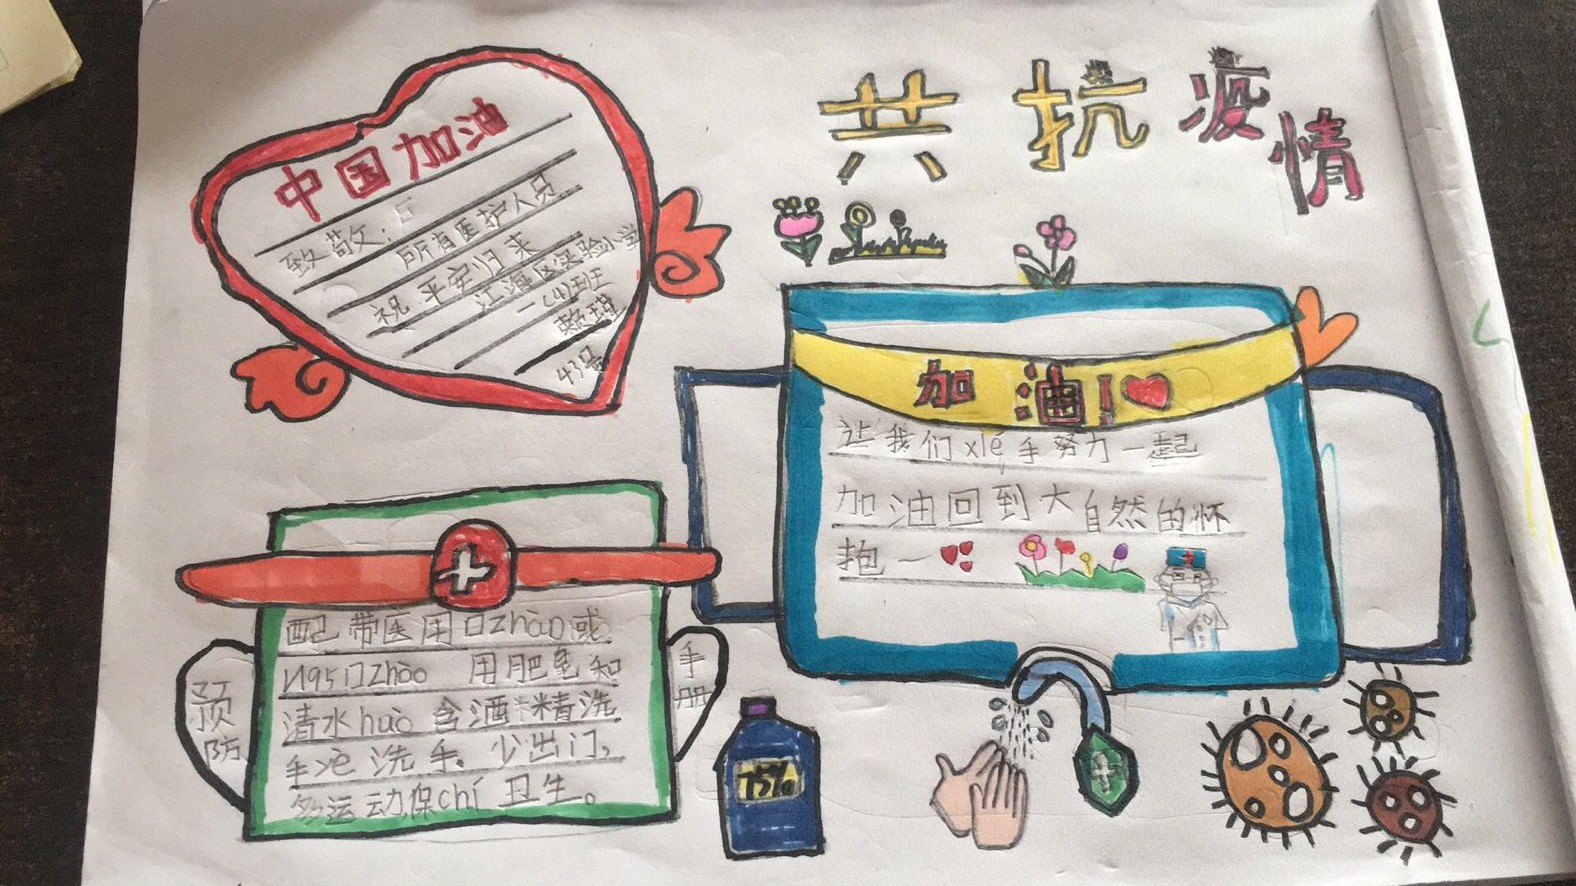 共抗疫情
中国加油
致敬:
所有医护人员
祝 平安归来
江海区实验小学
(4)班
43号
加油!
让我们xié手努力一起
加油回到大自然的怀
抱
配带医用口zhào或
N95口zhào 用肥皂和
清水huò含酒精洗
手yè洗手。少出门,
多运动保chí卫生。
预防
手册
75%